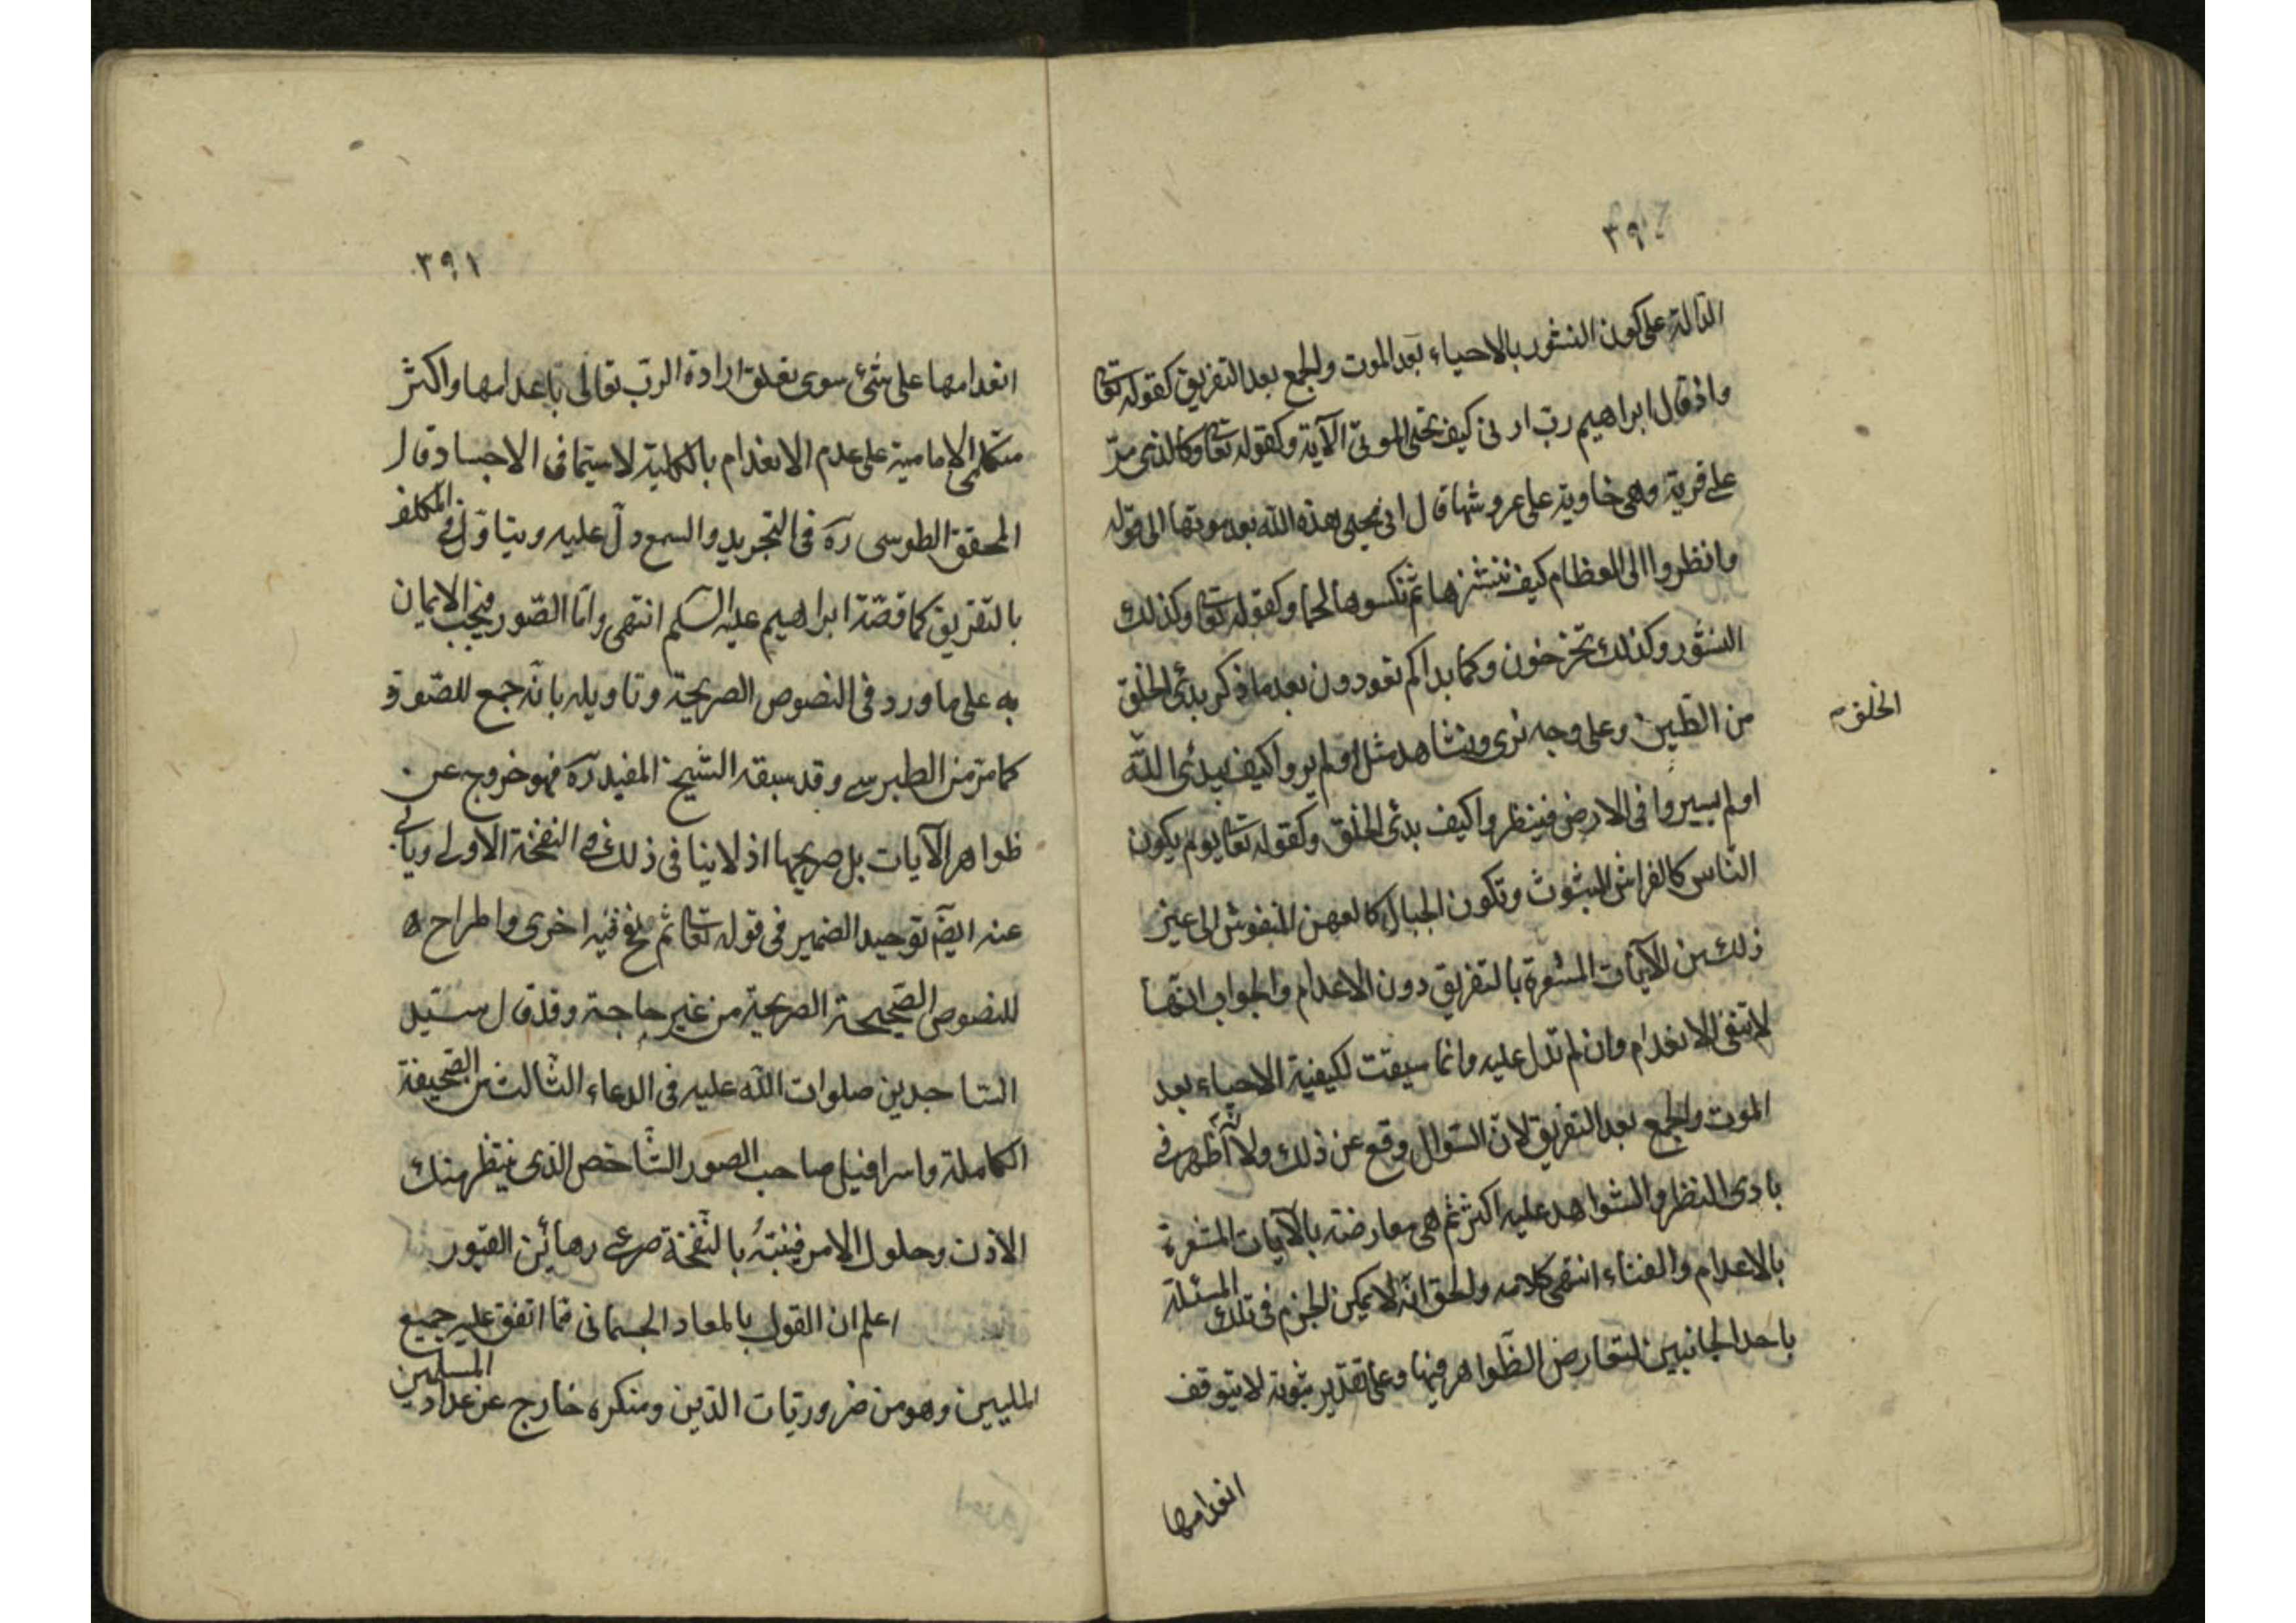 ٣٩٠
الدّالة على كون النشور بالاحياء بعد الموت والجمع بعد التفريق كقوله تعا
واذ قال ابراهيم ربّ ارنى كيف تحيى الموتى الآية وكقوله تعا وكالذى مرّ
على قرية وهى خاوية على عروشها قال انى يحيى هذه الله بعد موتها الى قوله
وانظروا الى العظام كيف ننشزها ثم نكسوها لحما وكقوله تعا وكذلك
النشور وكذلك تخرجون وكما بداكم تعودون بعد ما ذكر بدئ الخلق
من الطين وعلى وجه نرى ونشاهد مثل اولم يروا كيف يبدئ الله
الخلق
اولم يسيروا فى الارض فينظروا كيف بدئ الخلق وكقوله تعا يوم يكون
الناس كالفراش المبثوث وتكون الجبال كالعهن المنفوش الى غير
ذلك من الآيات المشعرة بالتفريق دون الاعدام والجواب انّها
لا تنفى الانعدام وان لم تدل عليه وانما سيقت لكيفية الاحياء بعد
الموت والجمع بعد التفريق لانّ السّوال وقع عن ذلك ولانّه اظهر فى
بادى النظر والشواهد عليه اكثر ثم هى معارضة بالآيات المشعرة
بالاعدام والفناء انتهى كلامه والحق انّه لا يمكن الجزم فى تلك المسئلة
باحد الجانبين لتعارض الظّواهر فيها وعلى تقدير ثبوته لا يتوقف
انعدامها
٣٩١
انعدامها على شئ سوى تعلق ارادة الربّ تعالى باعدامها واكثر
متكلمى الإمامية على عدم الانعدام بالكلية لا سيّما فى الاجساد قال
المحقق الطوسى ره فى التجريد والسمع دلّ عليه ويتاوّل فى المكلف
بالتفريق كما فى قصّة ابراهيم عليه السّلم انتهى وامّا الصّور فيجب الايمان
به على ما ورد فى النصوص الصريحة وتاويله بانّه جمع للصّورة
كما مرّ من الطبرسى وقد سبقه الشيخ المفيد ره فهو خروج عن
ظواهر الآيات بل صريحها اذ لا ينافى ذلك فى النفخة الاولى ويابى
عنه ايضا توحيد الضمير فى قوله تعا ثم نفخ فيه اخرى واطراح
للنصوص الصّحيحة الصريحة من غير حاجة وقد قال سيّد
السّاجدين صلوات الله عليه فى الدعاء الثّالث من الصّحيفة
الكاملة واسرافيل صاحب الصور الشّاخص الذى ينتظر منك
الاذن وحلول الامر فينبّه بالنّفخة صرعى رهائن القبور
اعلم ان القول بالمعاد الجسمانى ممّا اتفق عليه جميع
المليين وهو من ضروريّات الدّين ومنكره خارج عن عداد المسلمين